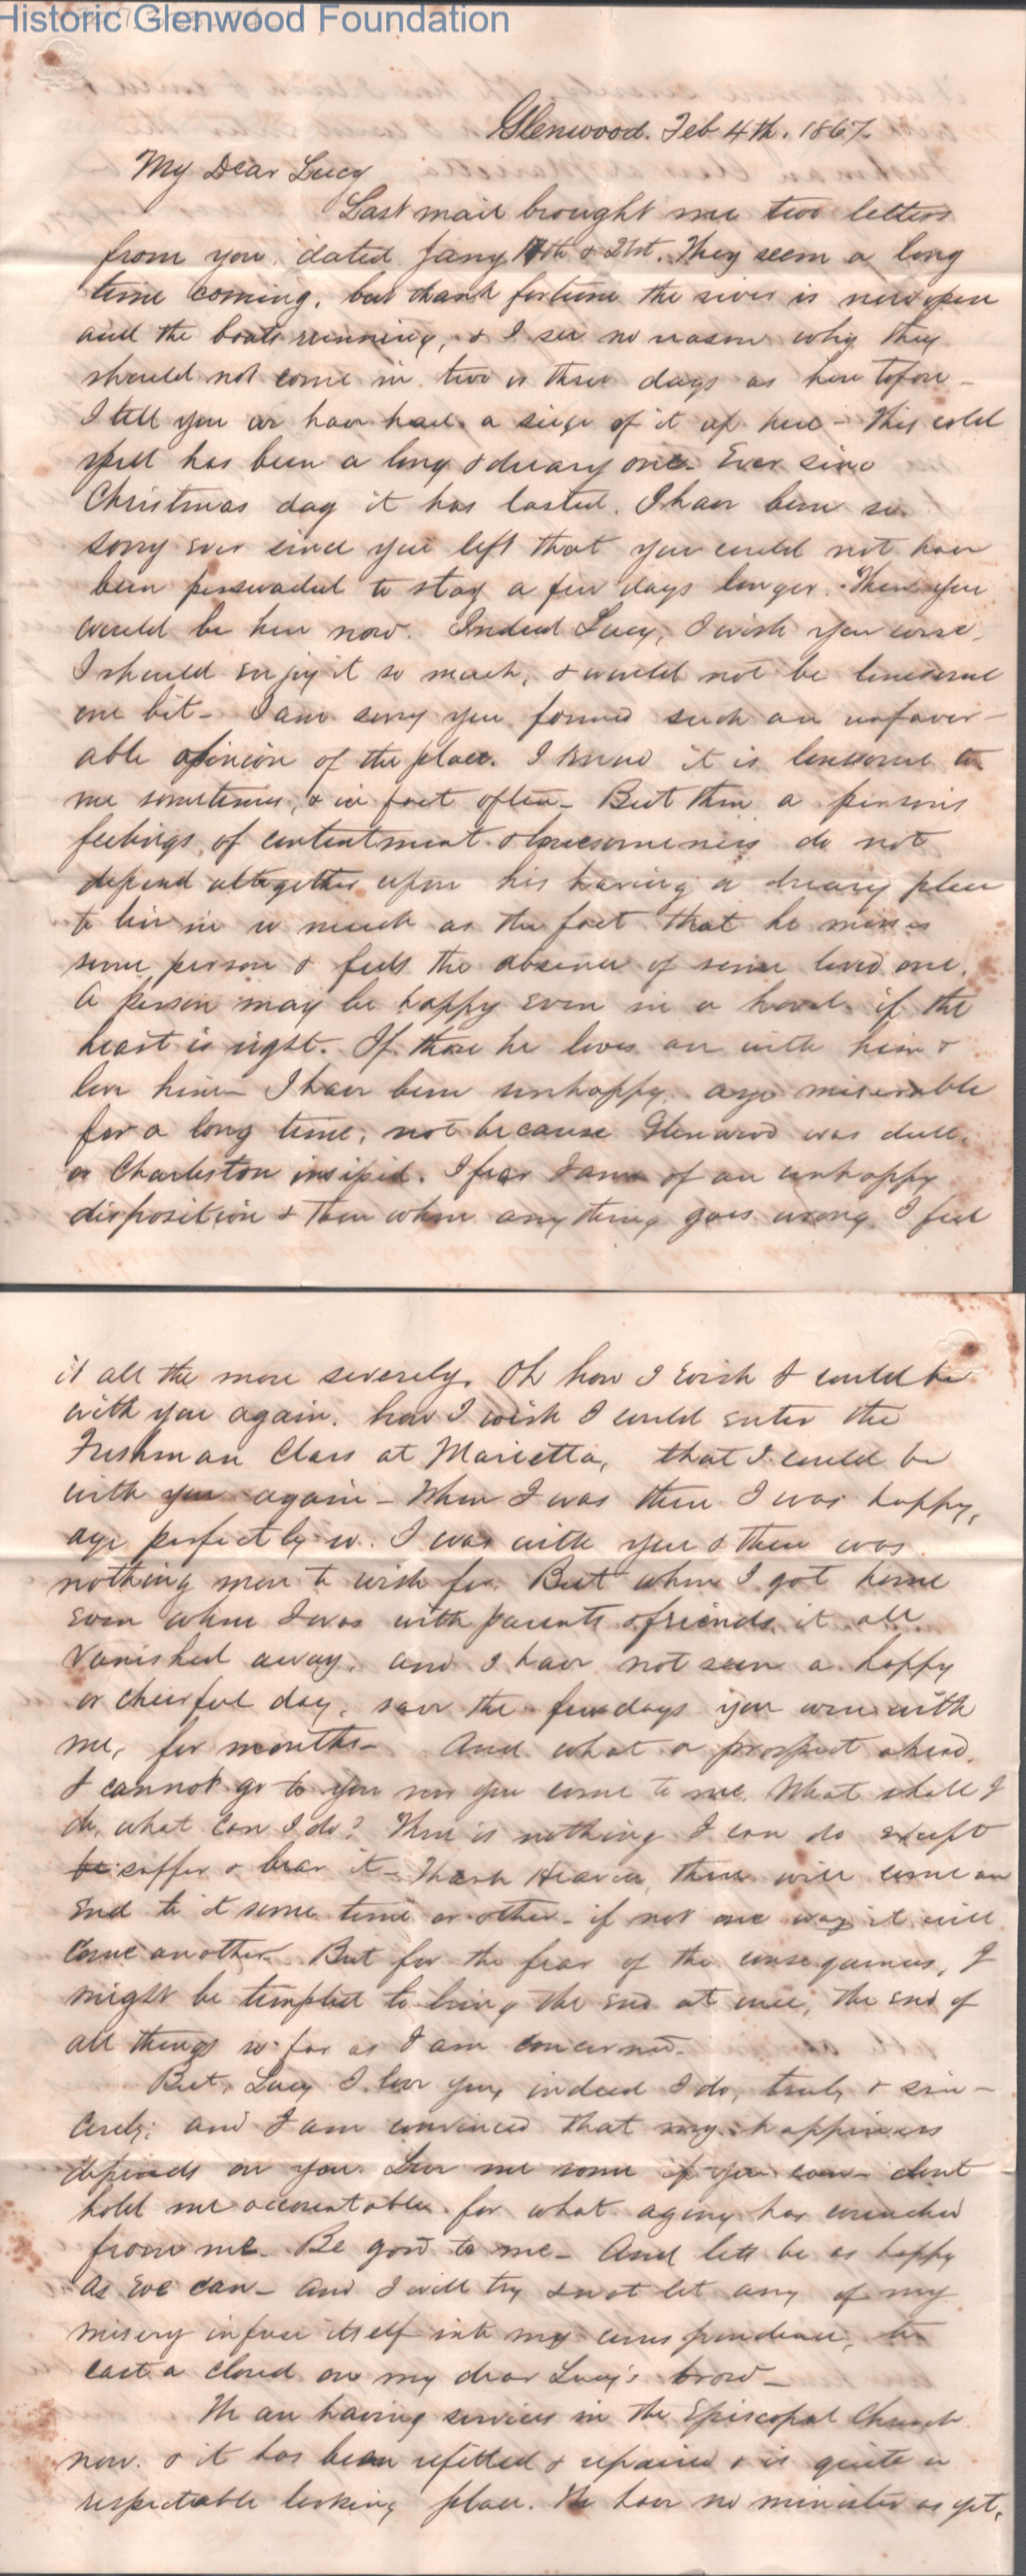 Historic Glenwood Foundation
Glenwood. Feb 4th. 1867.
My Dear Lucy
Last mail brought me two letters
from you, dated Jany 17th & 21st. They seem a long
time coming, but thank fortune the river is now open
and the boats running, & I see no reason why they
should not come in two or three days as here tofore –
I tell you we have had a seige of it up here – This cold
spell has been a long & dreary one – Ever since
Christmas day it has lasted. I have been so
sorry ever since you left that you could not have
been perswaded to stay a few days longer. Then you
would be here now. Indeed Lucy, I wish you were,
I should enjoy it so much, & would not be lonesome
one bit – I am sorry you formed such an unfavor–
able opinion of the place. I know it is lonesome to
me sometimes, & in fact often – But then a persons
feelings of contentment & lonesomeness do not
depend altogether upon his having a dreary place
to live in so much as the fact that he misses
some person & feels the absence of some loved one.
A person may be happy even in a hovel if the
heart is right. If those he loves are with him &
love him – I have been unhappy, aye miserable
for a long time, not because Glenwood was dull
or Charleston insipid. I fear I am of an unhappy
disposition & then when any thing goes wrong I feel
it all the more severely. Oh how I wish I could be
with you again. how I wish I could enter the
Freshman Class at Marietta, that I could be
with you again – When I was there I was happy,
aye perfectly so. I was with you & there was
nothing more to wish for. But when I got home
even when I was with parents & friends it all
vanished away, and I have not seen a happy
or cheerful day, save the few days you were with
me, for months – And what a prospect ahead.
I cannot go to you nor you come to me. What shall I
do, what can I do? There is nothing I can do except
be suffer & bear it – Thank Heaven, there will come an
End to it some time or other – if not one way it will
come another. But for the fear of the consequences, I
might be tempted to bring the end at once, the end of
all things so far as I am concerned.
But, Lucy I love you, indeed I do, truly & sin–
cerely; and I am convinced that my happiness
depends on you. Love me some if you can – dont
hold me accountable for what agony has wrenched
from me – Be good to me – And lets be as happy
as we can – And I will try & not let any of my
misery infuse itself into my correspondence, to
cast a cloud on my dear Lucy's brow –
We are having services in the Episcopal Church
now. & it has been refitted & repaired & is quite a
respectable looking place. We have no minister as yet,